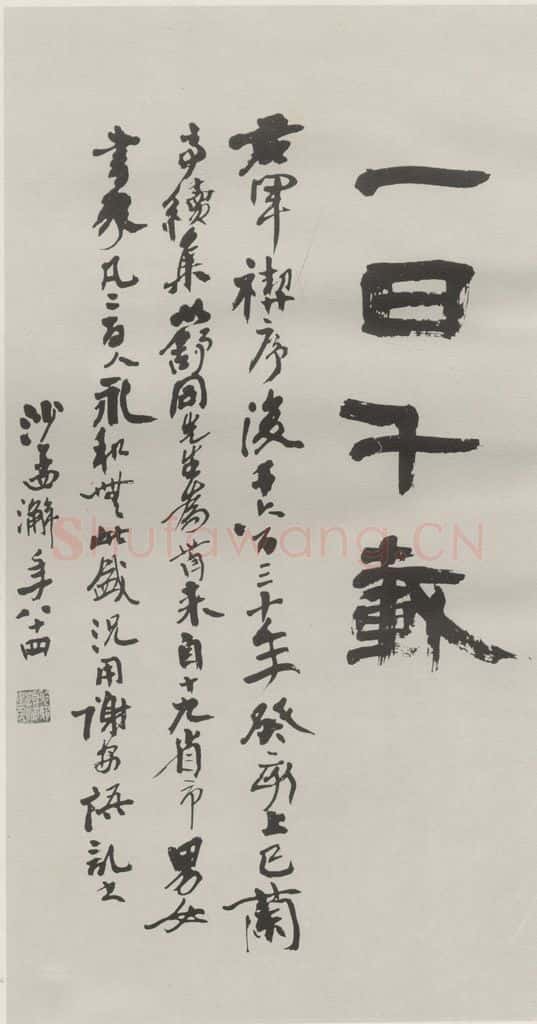 一日千載
右軍禊序後千六百三十年癸亥上巳蘭
亭續集以舒同先生為首来自十九省市男女
書家凡二百人永和無此盛況用謝安語記之
沙孟澥年八十四
Shufawang.CN